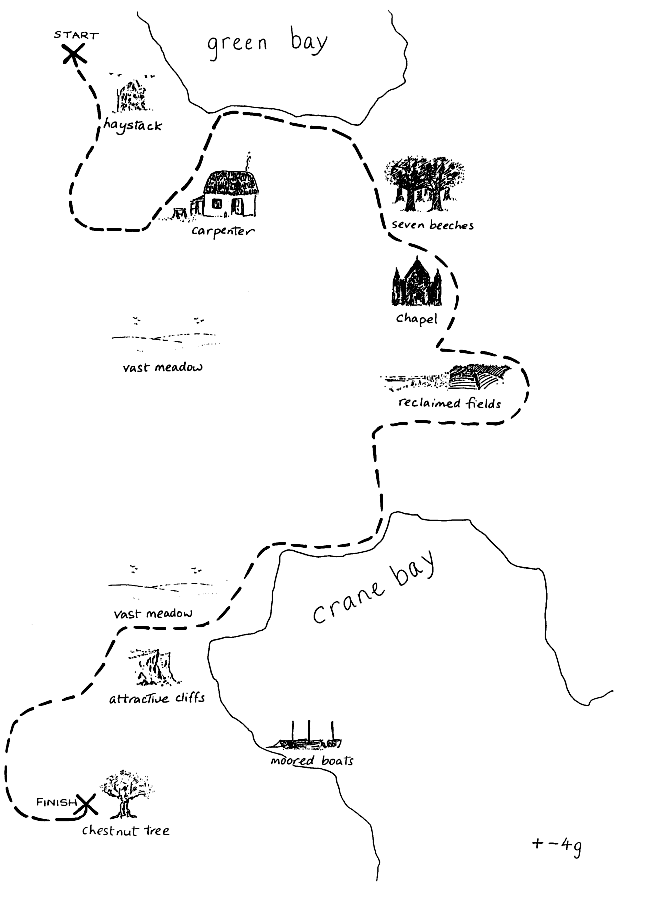 START
green bay
haystack
carpenter
seven beeches
chapel
vast meadow
reclaimed fields
crane bay
vast meadow
attractive cliffs
moored boats
FINISH
chestnut tree
+-4g